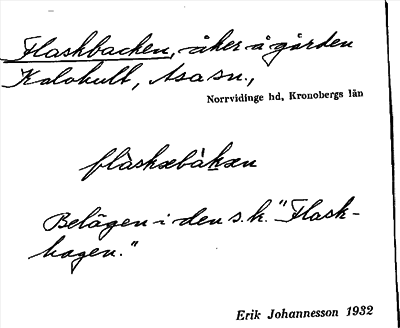 Flaskbacken, åker å gården
Kalokult, Asa sn.,
Norrvidinge hd, Kronobergs län
flàskəbàkən
Belägen i den s. k. "Flask-
hagen."
Erik Johannesson 1932